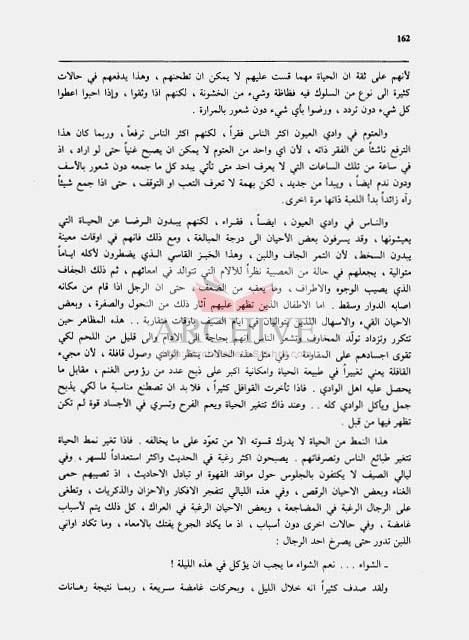 162
لأنهم على ثقة ان الحياة مهما قست عليهم لا يمكن ان تطحنهم ، وهذا يدفعهم في حالات
كثيرة الى نوع من السلوك فيه فظاظة وشيء من الخشونة ، لكنهم اذا وثقوا ، وإذا احبوا اعطوا
كل شيء دون تردد ، ورضوا بأي شيء دون شعور بالمرارة .
والعتوم في وادي العيون اكثر الناس فقراً ، لكنهم اكثر الناس ترفعاً ، وربما كان هذا
الترفع ناشئاً عن الفقر ذاته ، لأن اي واحد من العتوم لا يمكن ان يصبح غنياً حتى لو اراد ، اذ
في ساعة من تلك الساعات التي لا يعرف احد متى تأتي يبدد كل ما جمعه دون شعور بالأسف
ودون ندم ايضاً ، ويبدأ من جديد ، لكن بهمة لا تعرف التعب او التوقف ، حتى اذا جمع شيئاً
رآه زائداً بدأ اللعبة ذاتها مرة اخرى.
والناس في وادي العيون ، ايضاً ، فقراء ، لكنهم يبدون الرضا عن الحياة التي
يعيشونها ، وقد يسرفون بعض الأحيان الى درجة المبالغة ، ومع ذلك فانهم في اوقات معينة
يبدون السخط، لأن التمر الجاف واللبن ، وهذا الخبز القاسي الذي يضطرون لأكله اياماً
متوالية ، يجعلهم في حالة من العصبية نظراً للآلام التي تتوالد في امعائهم ، ثم ذلك الجفاف
الذي يصيب الوجوه والاطراف ، وما يعقبه من الضعف ، حتى ان الرجل اذا قام من مكانه
اصابه الدوار وسقط . اما الاطفال الذين تظهر عليهم آثار ذلك من النحول والصفرة ، وبعض
الاحيان القيء والاسهال اللذين يتواليان في ايام الصيف بأوقات متقاربة .. هذه المظاهر حين
تتكرر وتزداد تولّد المخاوف وتشعر الناس أنهم بحاجة الى الادام والى قليل من اللحم لكي
تقوى اجسادهم على المقاومة . وفي مثل هذه الحالات ينتظر الوادي وصول قافلة ، لأن مجيء
القافلة يعني تغييراً في طبيعة الحياة وامكانية اكبر على ذبح عدد من رؤوس الغنم ، مقابل ما
يحصل عليه اهل الوادي . فاذا تأخرت القوافل كثيراً ، فلا بد ان تصطنع مناسبة ما لكي يذبح
جمل ويأكل الوادي كله .. وعند ذاك تتغير الحياة ويعم الفرح وتسري في الأجساد قوة لم تكن
تظهر فيها من قبل .
هذا النمط من الحياة لا يدرك قسوته الا من تعوّد على ما يخالفه . فاذا تغير نمط الحياة
تتغير طبائع الناس وتصرفاتهم . يصبحون اكثر رغبة في الحديث واكثر استعداداً للسهر ، وفي
ليالي الصيف لا يكتفون بالجلوس حول مواقد القهوة او تبادل الاحاديث ، اذ تصيبهم حمى
الغناء وبعض الاحيان الرقص ، وفي هذه الليالي تتفجر الافكار والاحزان والذكريات ، وتطغى
على الرجال الرغبة في المضاجعة ، وبعض الاحيان الرغبة في العراك ، كل ذلك يتم لأسباب
غامضة ، وفي حالات اخرى دون أسباب ، اذ ما يكاد الجوع يفتك بالامعاء ، وما تكاد اواني
اللبن تدور حتى يصرخ احد الرجال :
ـ الشواء ... نعم الشواء ما يجب ان يؤكل في هذه الليلة !
ولقد صدف كثيراً انه خلال الليل ، وبحركات غامضة سريعة ، ربما نتيجة رهانات
ARCHIVE